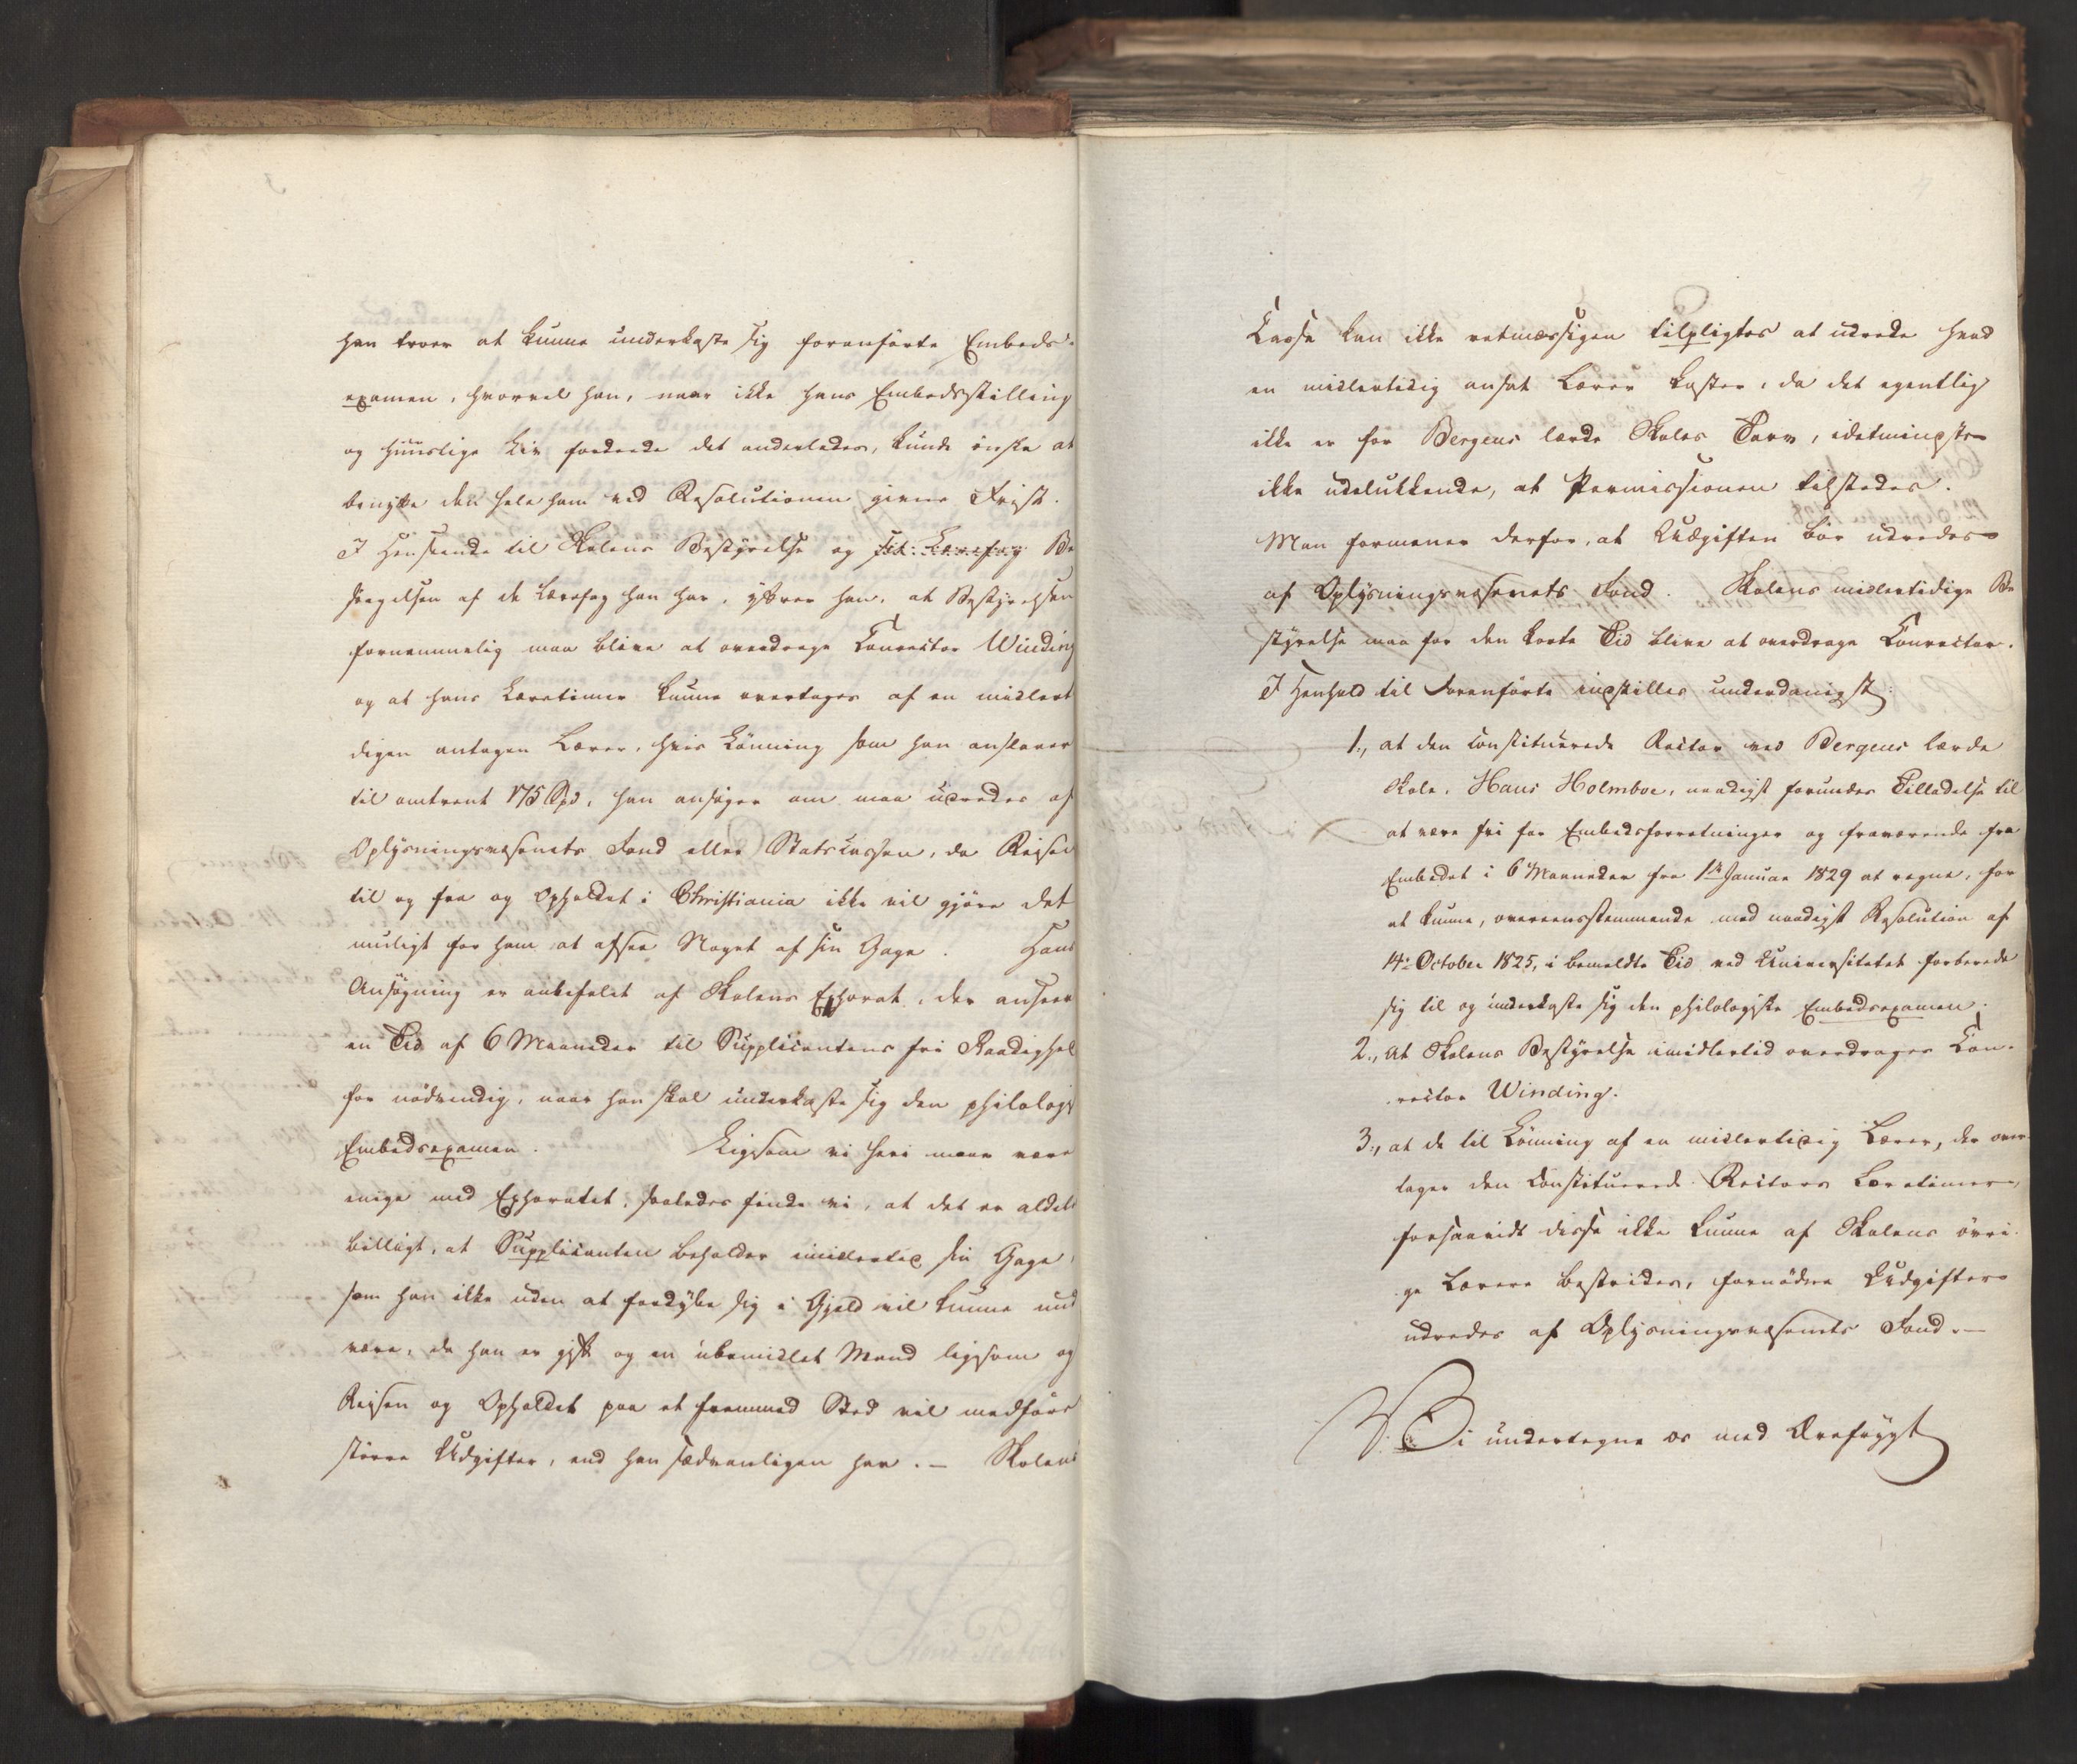 han troer at kunne underkaste sig foranførte Embeds-
examen, hvorvel han, naar ikke hans Embedsstilling
og huuslige Liv fordrede det anderledes, kunde ønske at
benytte den hele ham ved Resolutionen givne Frist.
I Henseende til Skolens Bestyrelse og sit Lærefag Be
sørgelsen af de Lærefag han har, yttrer han, at Bestyrelsen
fornemmelig maa blive at overdrage Conrector Winding
og at hans Læretimer kunne overtages af en midlert
digen antagen Lærer, hvis Lønning som han anslaaer
til omtrent 175 Spd, han ansøger om maa udredes af
Oplysningsvæsenets Fond eller Statscassen, da Reisen
til og fra og Opholdet i Christiania ikke vil gjøre det
muligt for ham at afsee Noget af sin Gage. Hans
Ansøgning er anbefalet af Skolens Ephorat, der anseer
en Tid af 6 Maaneder til Supplicantens fri Raadighed
for nødvendig, naar han skal underkaste sig den philologi
Embedsexamen. Ligesom vi heri maae være
enige med Ephoratet, saaledes finde vi, at det er aldele
billigt, at Supplicanten beholder imidlertid sin Gage,
som han ikke uden at fordybe sig i Gjeld vil kunne und
være, da han er gift og en ubemidlet Mand ligesom og
Reisen og Opholdet paa et fremmed Sted vil medføre
større Udgifter, end han sædvanligen har. – Skolens
Casse kan ikke retmæssigen tilpligtes at udrede hvad
en midlertidig ansat Lærer koster, da det egentlig
ikke er for Bergens lærde Skoles Tarv, idetmindste
ikke udelukkende, at Permissionen tilstedes.
Man formener derfor, at Udgiften bør udredes
af Oplysningsvæsenets Fond. Skolens midlertidige Be
styrelse maa for den korte Tid blive at overdrage Conrector.
I Henhold til Foranførte indstilles underdanigst:
1., at den constituerede Rector ved Bergens lærde
Skole, Hans Holmboe, naadigst forundes Tilladelse til
at være fri for Embedsforretninger og fraværende fra
Embedet i 6 Maaneder fra 1ste Januar 1829 at regne, for
at kunne, overeensstemmende med naadigst Resolution af
14de October 1825, i bemeldte Tid ved Universitetet forberede
sig til og underkaste sig den philologiske Embedsexamen.
2., at Skolens Bestyrelse imidlertid overdrages Con-
rector Winding.
3., at de til Lønning af en midlertidig Lærer, der over-
tager den constituerede Rectors Læretimer,
forsaavidt disse ikke kunne af Skolens øvri-
ge Lærere bestrides, fornødne Udgifter
udredes af Oplysningsvæsenets Fond. –
Vi undertegne os med Ærefrygt